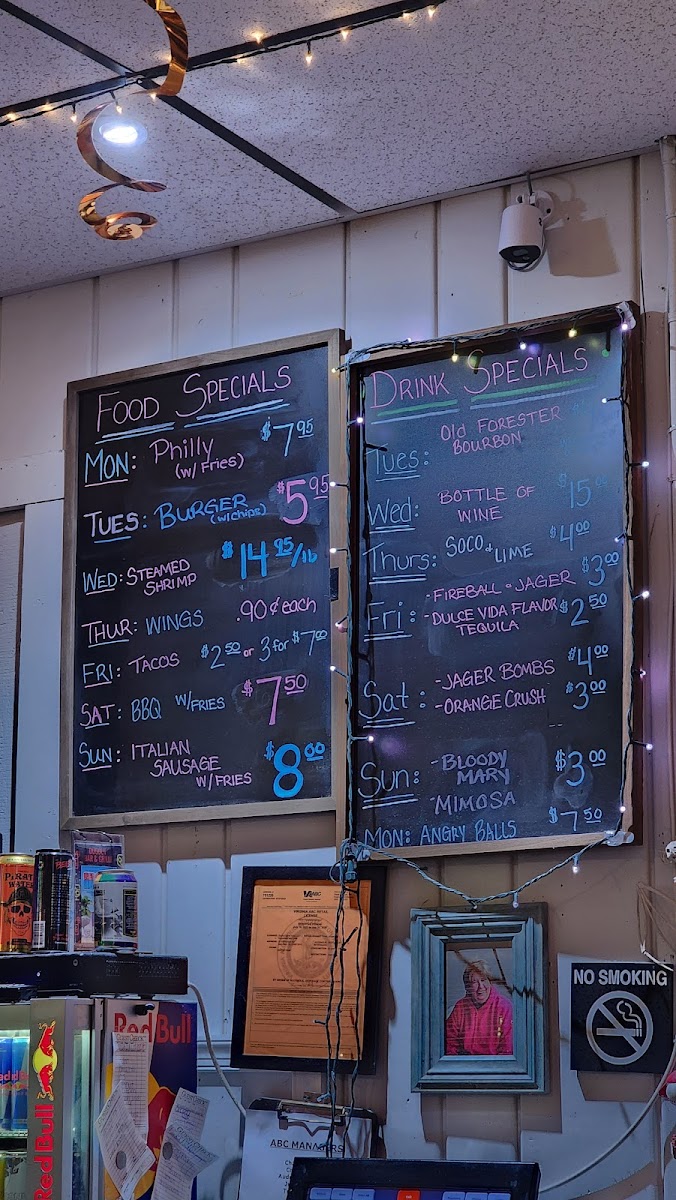 FOOD SPECIALS
MON: Philly $7.95
(w/ Fries)
TUES: BURGER $5.95
(w/chips)
WED: STEAMED SHRIMP $14.95/lb
THUR: WINGS .90¢ each
FRI: TACOS $2.50 or 3 for $7.00
SAT: BBQ W/FRIES $7.50
SUN: ITALIAN SAUSAGE $8.00
W/FRIES
DRINK SPECIALS
Tues: Old FORESTER
BOURBON
Wed: BOTTLE OF WINE $15
Thurs: SOCO & LIME $4.00
Fri: -FIREBALL & JAGER $3.00
-DULCE VIDA FLAVOR $2.50
TEQUILA
Sat: -JAGER BOMBS $4.00
-ORANGE CRUSH $3.00
Sun: -BLOODY MARY $3.00
-MIMOSA
MON: ANGRY BALLS $7.50
PiRATE
WATER
ABC
NO SMOKING
RedBull
Red Bull
ABC MANAGERS